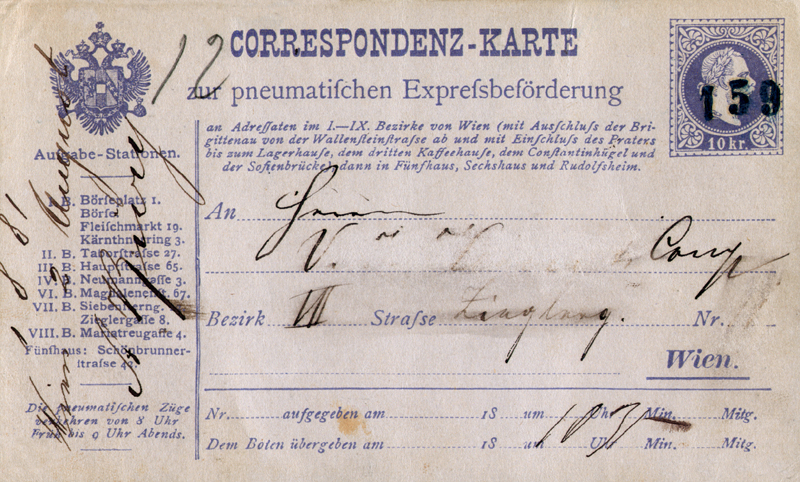 12
CORRESPONDENZ-KARTE
zur pneumatiſchen Expreſsbeförderung
159
10 kr.
an Adreſſaten im I.—IX. Bezirke von Wien (mit Ausſchluſs der Bri-
gittenau von der Wallenſteinſtraſse ab und mit Einſchluſs des Praters
bis zum Lagerhauſe, dem dritten Kaffeehauſe, dem Conſtantinhügel und
der Sofienbrücke) dann in Fünfhaus, Sechshaus und Rudolfsheim.
Ausgabe-Stationen.
I. B. Börſenplatz 1.
Börſe
Fleiſchmarkt 19.
Kärnthnerring 3.
II. B. Taborſtraſse 27.
III. B. Hauptſtraſse 65.
IV. B. Neumanngaſſe 3.
VI. B. Magdalenenſt. 67.
VII. B. Siebenſterng.
Zieglergaſſe 8.
VIII. B. Mariatreugaſſe 4.
Fünfhaus: Schönbrunner-
ſtraſse 42.
Die pneumatiſchen Züge
verkehren von 8 Uhr
Früh bis 9 Uhr Abends.
An Herrn
V. Comp
Bezirk VII Straſse Zieglerg. Nr.
Wien.
Nr. aufgegeben am 18 um Uhr Min. Mitg.
Dem Boten übergeben am 18 um Uhr Min. Mitg.